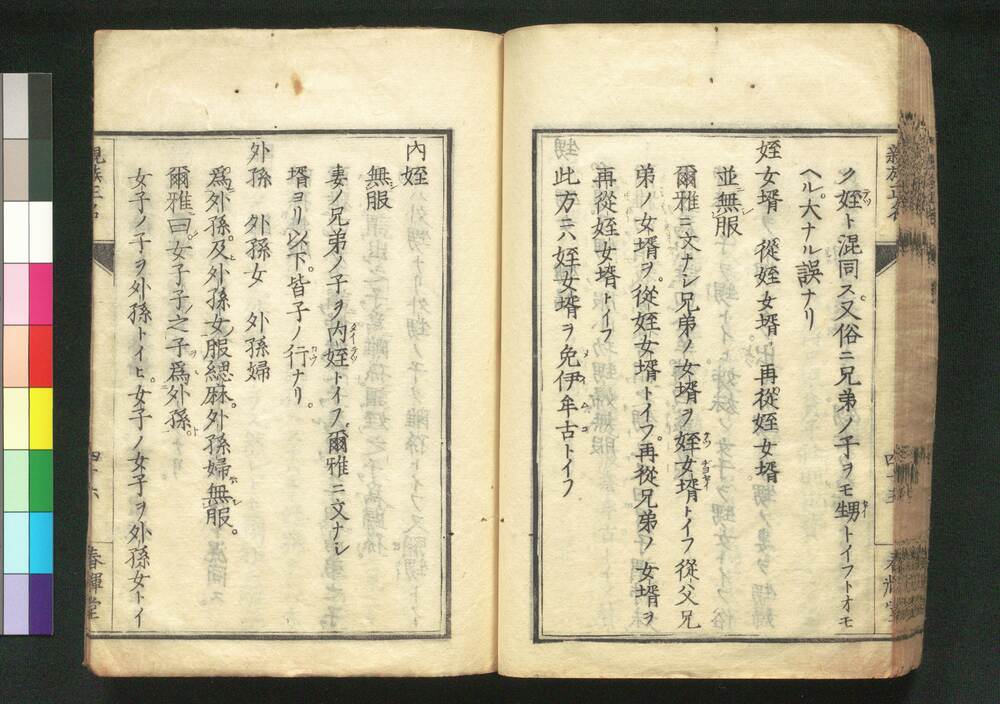 ク姪ト混同ス又俗ニ兄弟ノ子ヲモ甥トイフトオモ
ヘル。大ナル誤ナリ
姪女壻 從姪女壻 再從姪女壻
並無服
爾雅ニ文ナシ兄弟ノ女壻ヲ姪女壻トイフ從父兄
弟ノ女壻ヲ。從姪女壻トイフ。再從兄弟ノ女壻ヲ
再從姪女壻トイフ
此方ニハ姪女壻ヲ免伊牟古トイフ
內姪
無服
妻ノ兄弟ノ子ヲ內姪トイフ。爾雅ニ文ナシ
壻ヨリ以下。皆子ノ行ナリ。
外孫 外孫女 外孫婦
爲外孫。及外孫女。服緦麻。外孫婦無服。
爾雅曰女子子之子爲外孫。
女子ノ子ヲ外孫トイヒ。女子ノ女子ヲ外孫女トイ
親族正名
四十六
春輝堂